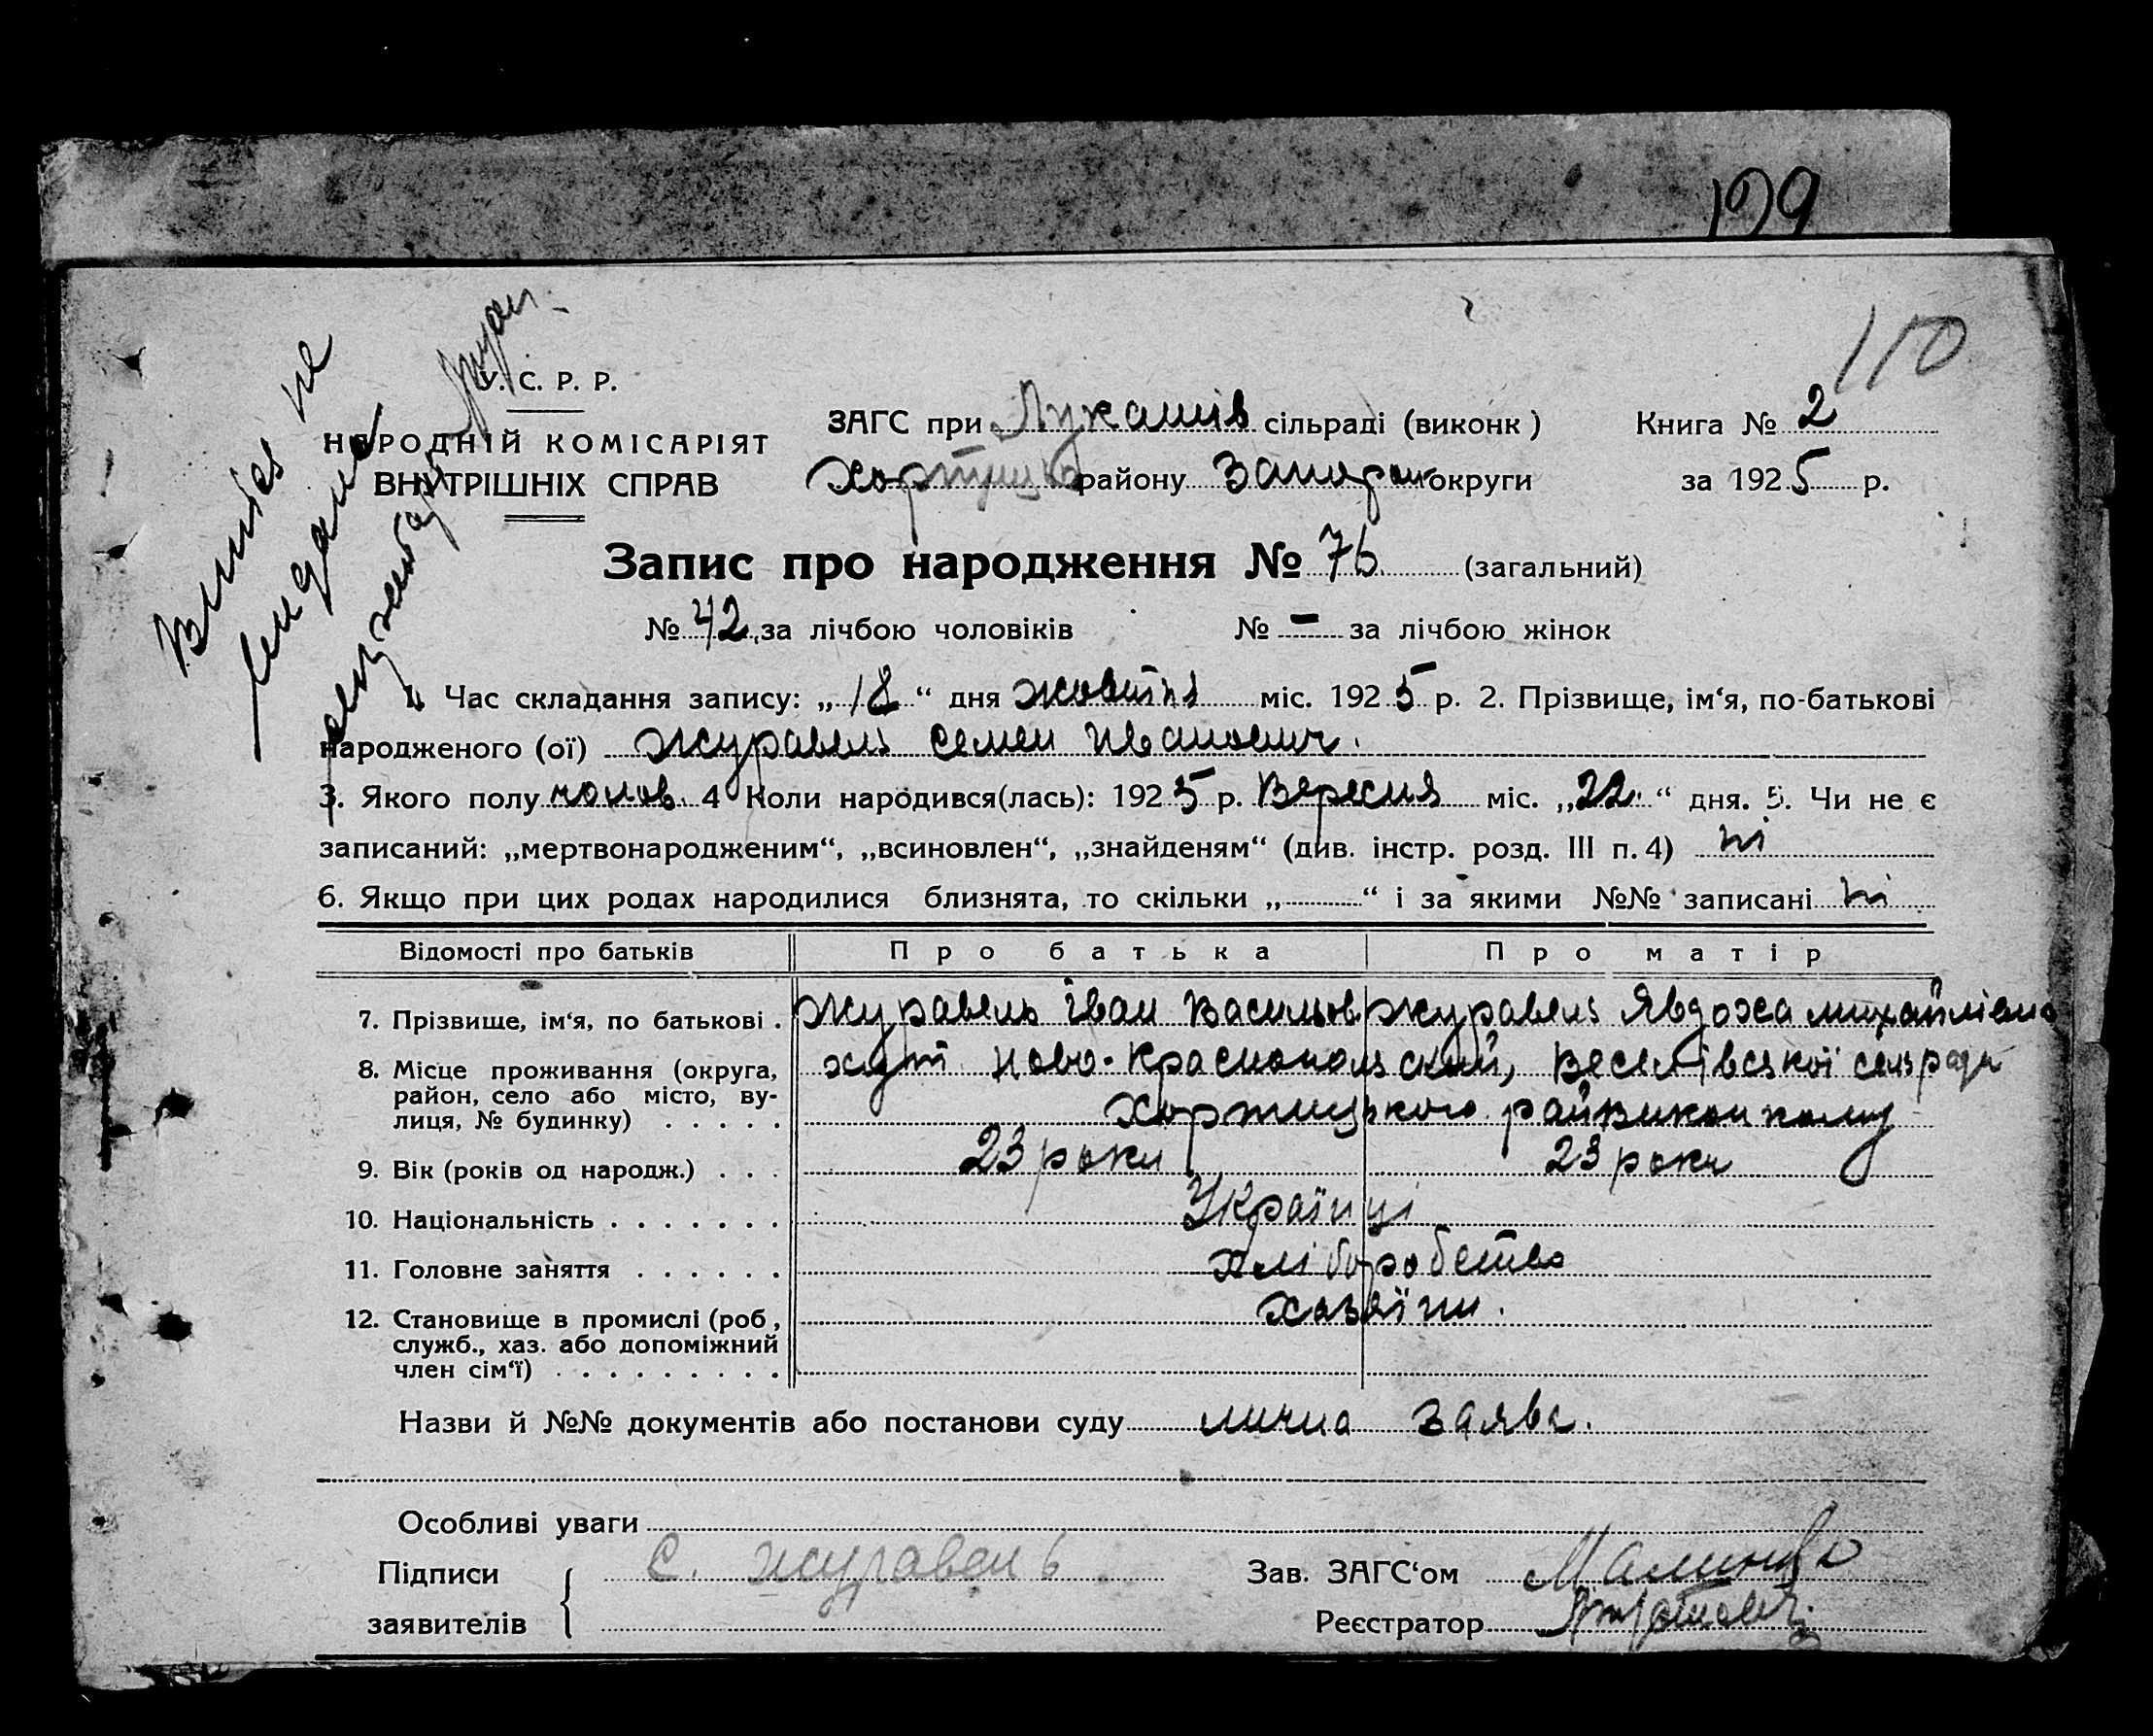 199
110
Витяг не
видано
У. С. Р. Р.
НАРОДНІЙ КОМІСАРІЯТ
ВНУТРІШНІХ СПРАВ
ЗАГС при Лукашів сільраді (виконк)
Хортицьк району Запоріж округи
Книга № 2
за 1925 р.
Запис про народження № 76 (загальний)
№ 42 за лічбою чоловіків № – за лічбою жінок
Час складання запису: „18“ дня жовтня міс. 1925 р. 2. Прізвище, ім‘я, по-батькові
народженого (ої) Журавель Семен Иванович.
3. Якого полу чолов. 4 Коли народився(лась): 1925 р. Вересня міс. „22“ дня. 5. Чи не є
записаний: „мертвонародженим“, „всиновлен“, „знайденям“ (див. інстр. розд. III п. 4) ні
6. Якщо при цих родах народилися близнята, то скільки „ “ і за якими №№ записані ні
Відомості про батьків Про батька Про матір
7. Прізвище, ім‘я, по батькові . Журавель Іван Васильов Журавель Явдоха Михайлівна
8. Місце проживання (округа, район, село або місто, вулиця, № будинку) . . . . . хут. Ново-Краснопольский, Веселівської сільради
Хортицького райвиконкому
9. Вік (років од народж.) . . . 23 роки 23 роки
10. Національність . . . . . . . Українці
11. Головне заняття . . . . . . хліборобство
12. Становище в промислі (роб, служб., хаз. або допоміжний член сім‘ї) . . . . . . . . . хазяїни.
Назви й №№ документів або постанови суду лична заява.
Особливі уваги
Підписи
заявителів
С. Журавель
Зав. ЗАГС‘ом
Реєстратор